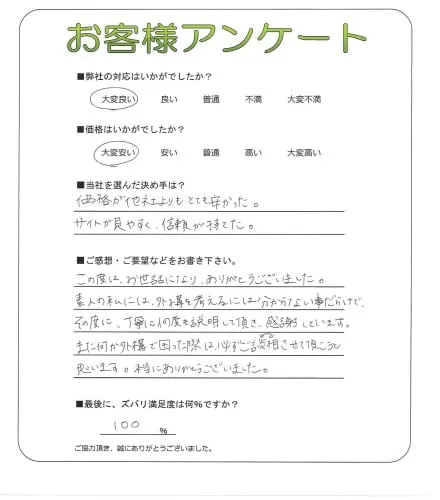 お客様アンケート
■弊社の対応はいかがでしたか？
大変良い 良い 普通 不満 大変不満
■価格はいかがでしたか？
大変安い 安い 普通 高い 大変高い
■当社を選んだ決め手は？
価格が他社よりもとても安かった。
サイトが見やすく、信頼が持てた。
■ご感想・ご要望などをお書き下さい。
この度は、お世話になり、ありがとうございました。
素人の私には、外構を考えるには分からない事だらけで、
その度に、丁寧に何度も説明して頂き、感謝しています。
また何か外構で困った際は、必ずご談相させて頂こうと
思います。本当にありがとうございました。
■最後に、ズバリ満足度は何％ですか？
100 %
ご協力頂き、誠にありがとうございました。